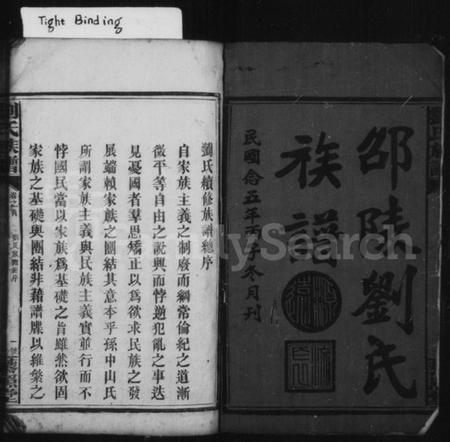 Tight Binding
邵陵劉氏
族譜
民國念五年丙子冬月刊
FamilySearch
劉氏續修族譜總序
自家族主義之制廢而綱常倫紀之道漸
微平等自由之說興而悖逆犯亂之事迭
見憂國者羣思矯正以爲欲求民族之發
展端賴家族之團結其意本乎孫中山氏
所謂家族主義與民族主義實並行而不
悖國民當以家族爲基礎之旨雖然欲固
家族之基礎與團結非藉譜牒以維繫之
劉氏族譜